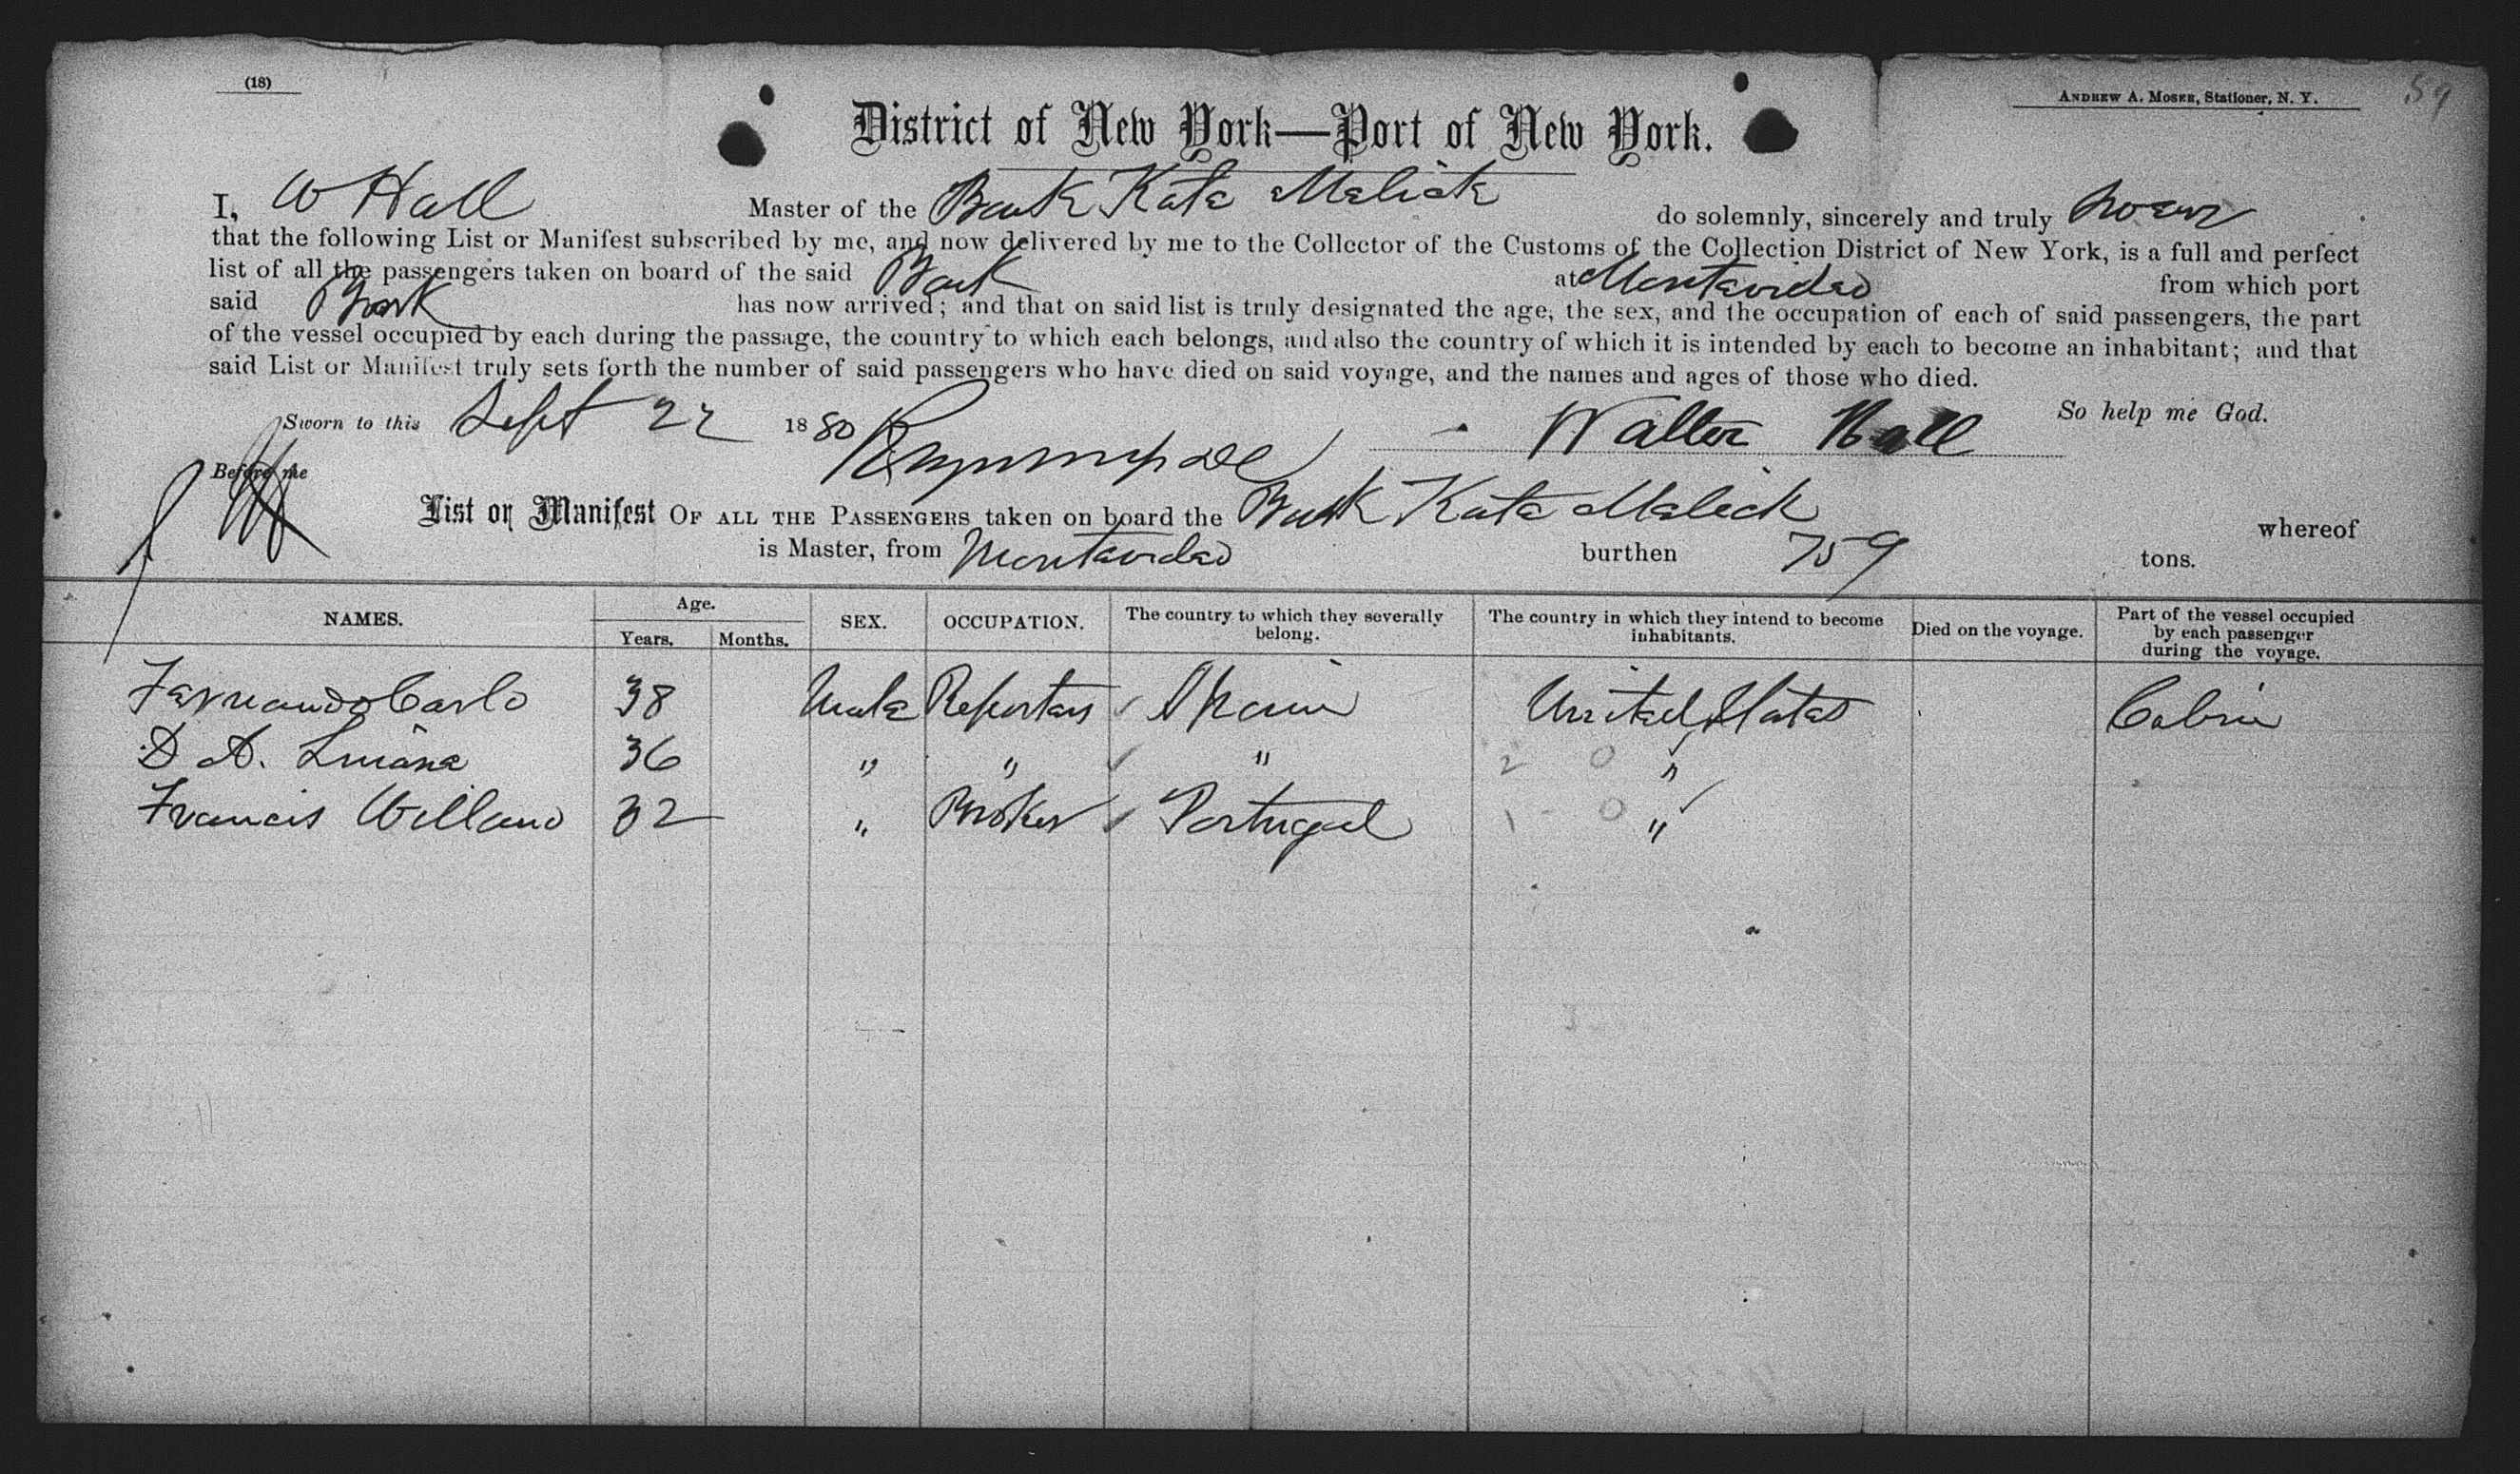 (18)
ANDREW A. MOSER, Stationer, N. Y.
59
District of New York—Port of New York.
I, W Hall Master of the Bark Kate Melick do solemnly, sincerely and truly swear
that the following List or Manifest subscribed by me, and now delivered by me to the Collector of the Customs of the Collection District of New York, is a full and perfect
list of all the passengers taken on board of the said Bark at Montevideo from which port
said Bark has now arrived; and that on said list is truly designated the age, the sex, and the occupation of each of said passengers, the part
of the vessel occupied by each during the passage, the country to which each belongs, and also the country of which it is intended by each to become an inhabitant; and that
said List or Manifest truly sets forth the number of said passengers who have died on said voyage, and the names and ages of those who died.
Sworn to this Sept 22 1880 Walter Hall So help me God.
Before me
List or Manifest OF ALL THE PASSENGERS taken on board the Bark Kate Melick whereof
is Master, from Montevideo burthen 759 tons.
NAMES. Age. Years. Months. SEX. OCCUPATION. The country to which they severally belong. The country in which they intend to become inhabitants. Died on the voyage. Part of the vessel occupied by each passenger during the voyage.
Fernando Carlo 38 Male Reporters Spain United States Cabin
D A. 36 " " " 2 0 "
Francis 32 " Broker Portugal 1 - 0 "